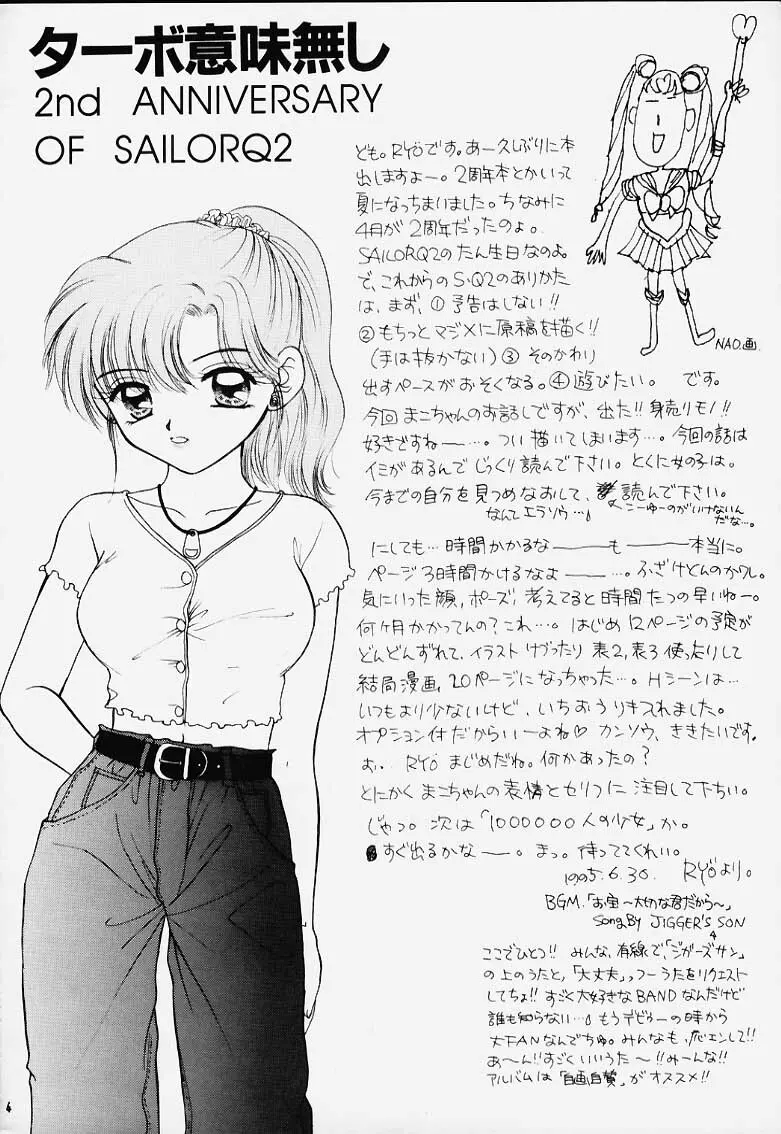 ターボ意味無し
2nd ANNIVERSARY
OF SAILORQ2
ども。RYÖです。あー久しぶりに本
出しますよー。2周年本とかいって
夏になっちまいました。ちなみに
4月が2周年だったのよ。
SAILORQ2のたん生日なのよ。
で、これからのS・Q2のありかた
は、まず、①予告はしない!!
②もちっとマジメに原稿を描く!!
(手は抜かない)③そのかわり
出すペースがおそくなる。④遊びたい。です。
今回まこちゃんのお話しですが、出た!!身売りモノ!!
好きですねー…。つい描いてしまいます…。今回の話は
イミがあるんでじっくり読んで下さい。とくに女の子は。
今までの自分を見つめなおして、読んで下さい。
なんてエラソウ…
こーゆーのがいけないん
だな…。
にしても…時間かかるなーーもーー本当に。
ページ3時間かけるなよーー…。ふざけとんのかワレ。
気にいった顔,ポーズ,考えてると時間たつの早いねー。
何ヶ月かかってんの?これ…。はじめ12ページの予定が
どんどんずれて,イラストけづったり表2,表3使ったりして
結局漫画,20ページになっちゃった…。Hシーンは…
いつもより少ないけど,いちおうりきいれました。
オプション付だからいーよね♡カンソウ,ききたいです。
お..RYÖまじめだね。何かあったの?
とにかくまこちゃんの表情とセリフに注目して下ちい。
じゃっ。次は「1000000人の少女」か。
すぐ出るかなー。まっ。待っててくれい。
1995.6.30. RYÖより。
BGM.「お宝〜大切な君だから〜」
Song By JIGGER'S SON
ここでひとつ!!みんな,有線で,「ジガーズサン」
の上のうたと,「大丈夫」っつーうたをリクエスト
してちょ!!すごく大好きなBANDなんだけど
誰も知らない…もうデビューの時から
大FANなんでちゅ。みんなも,応エンして!!
あ〜ん!!すごくいいうた〜!!みーんな!!
アルバムは「自画自賛」がオススメ!!
NAO.画.
4